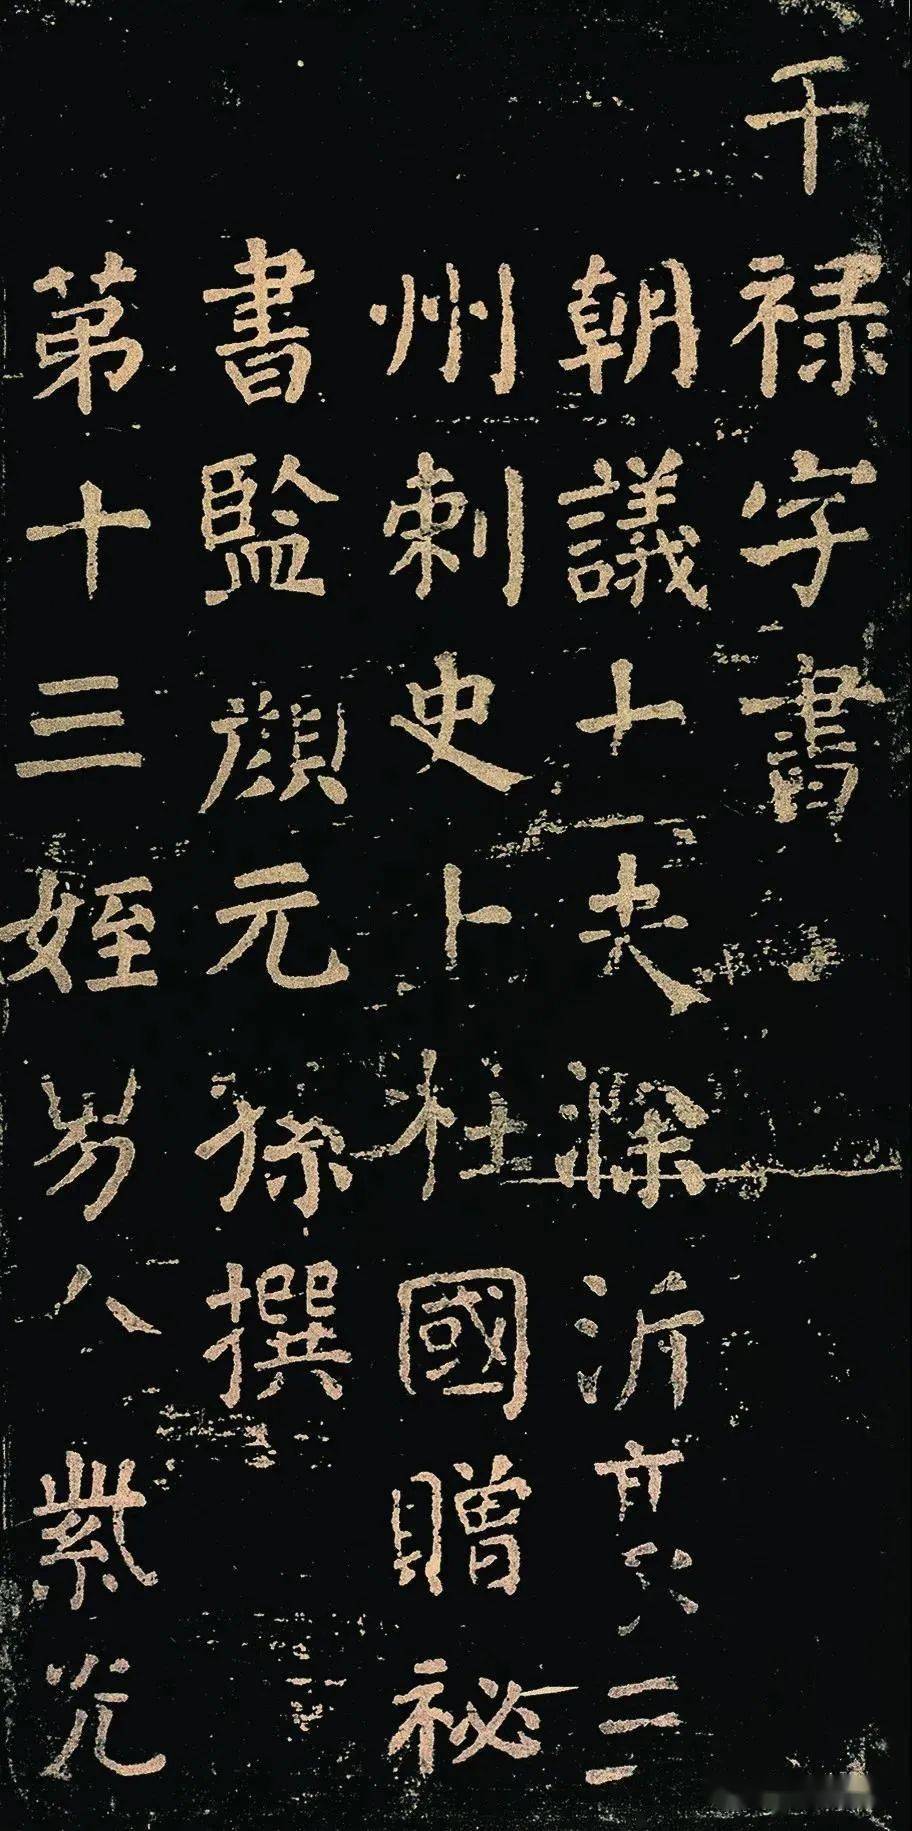 干禄字書
朝議大夫滁沂豪三
州刺史上柱國贈祕
書監顔元孫撰
第十三姪男金紫光